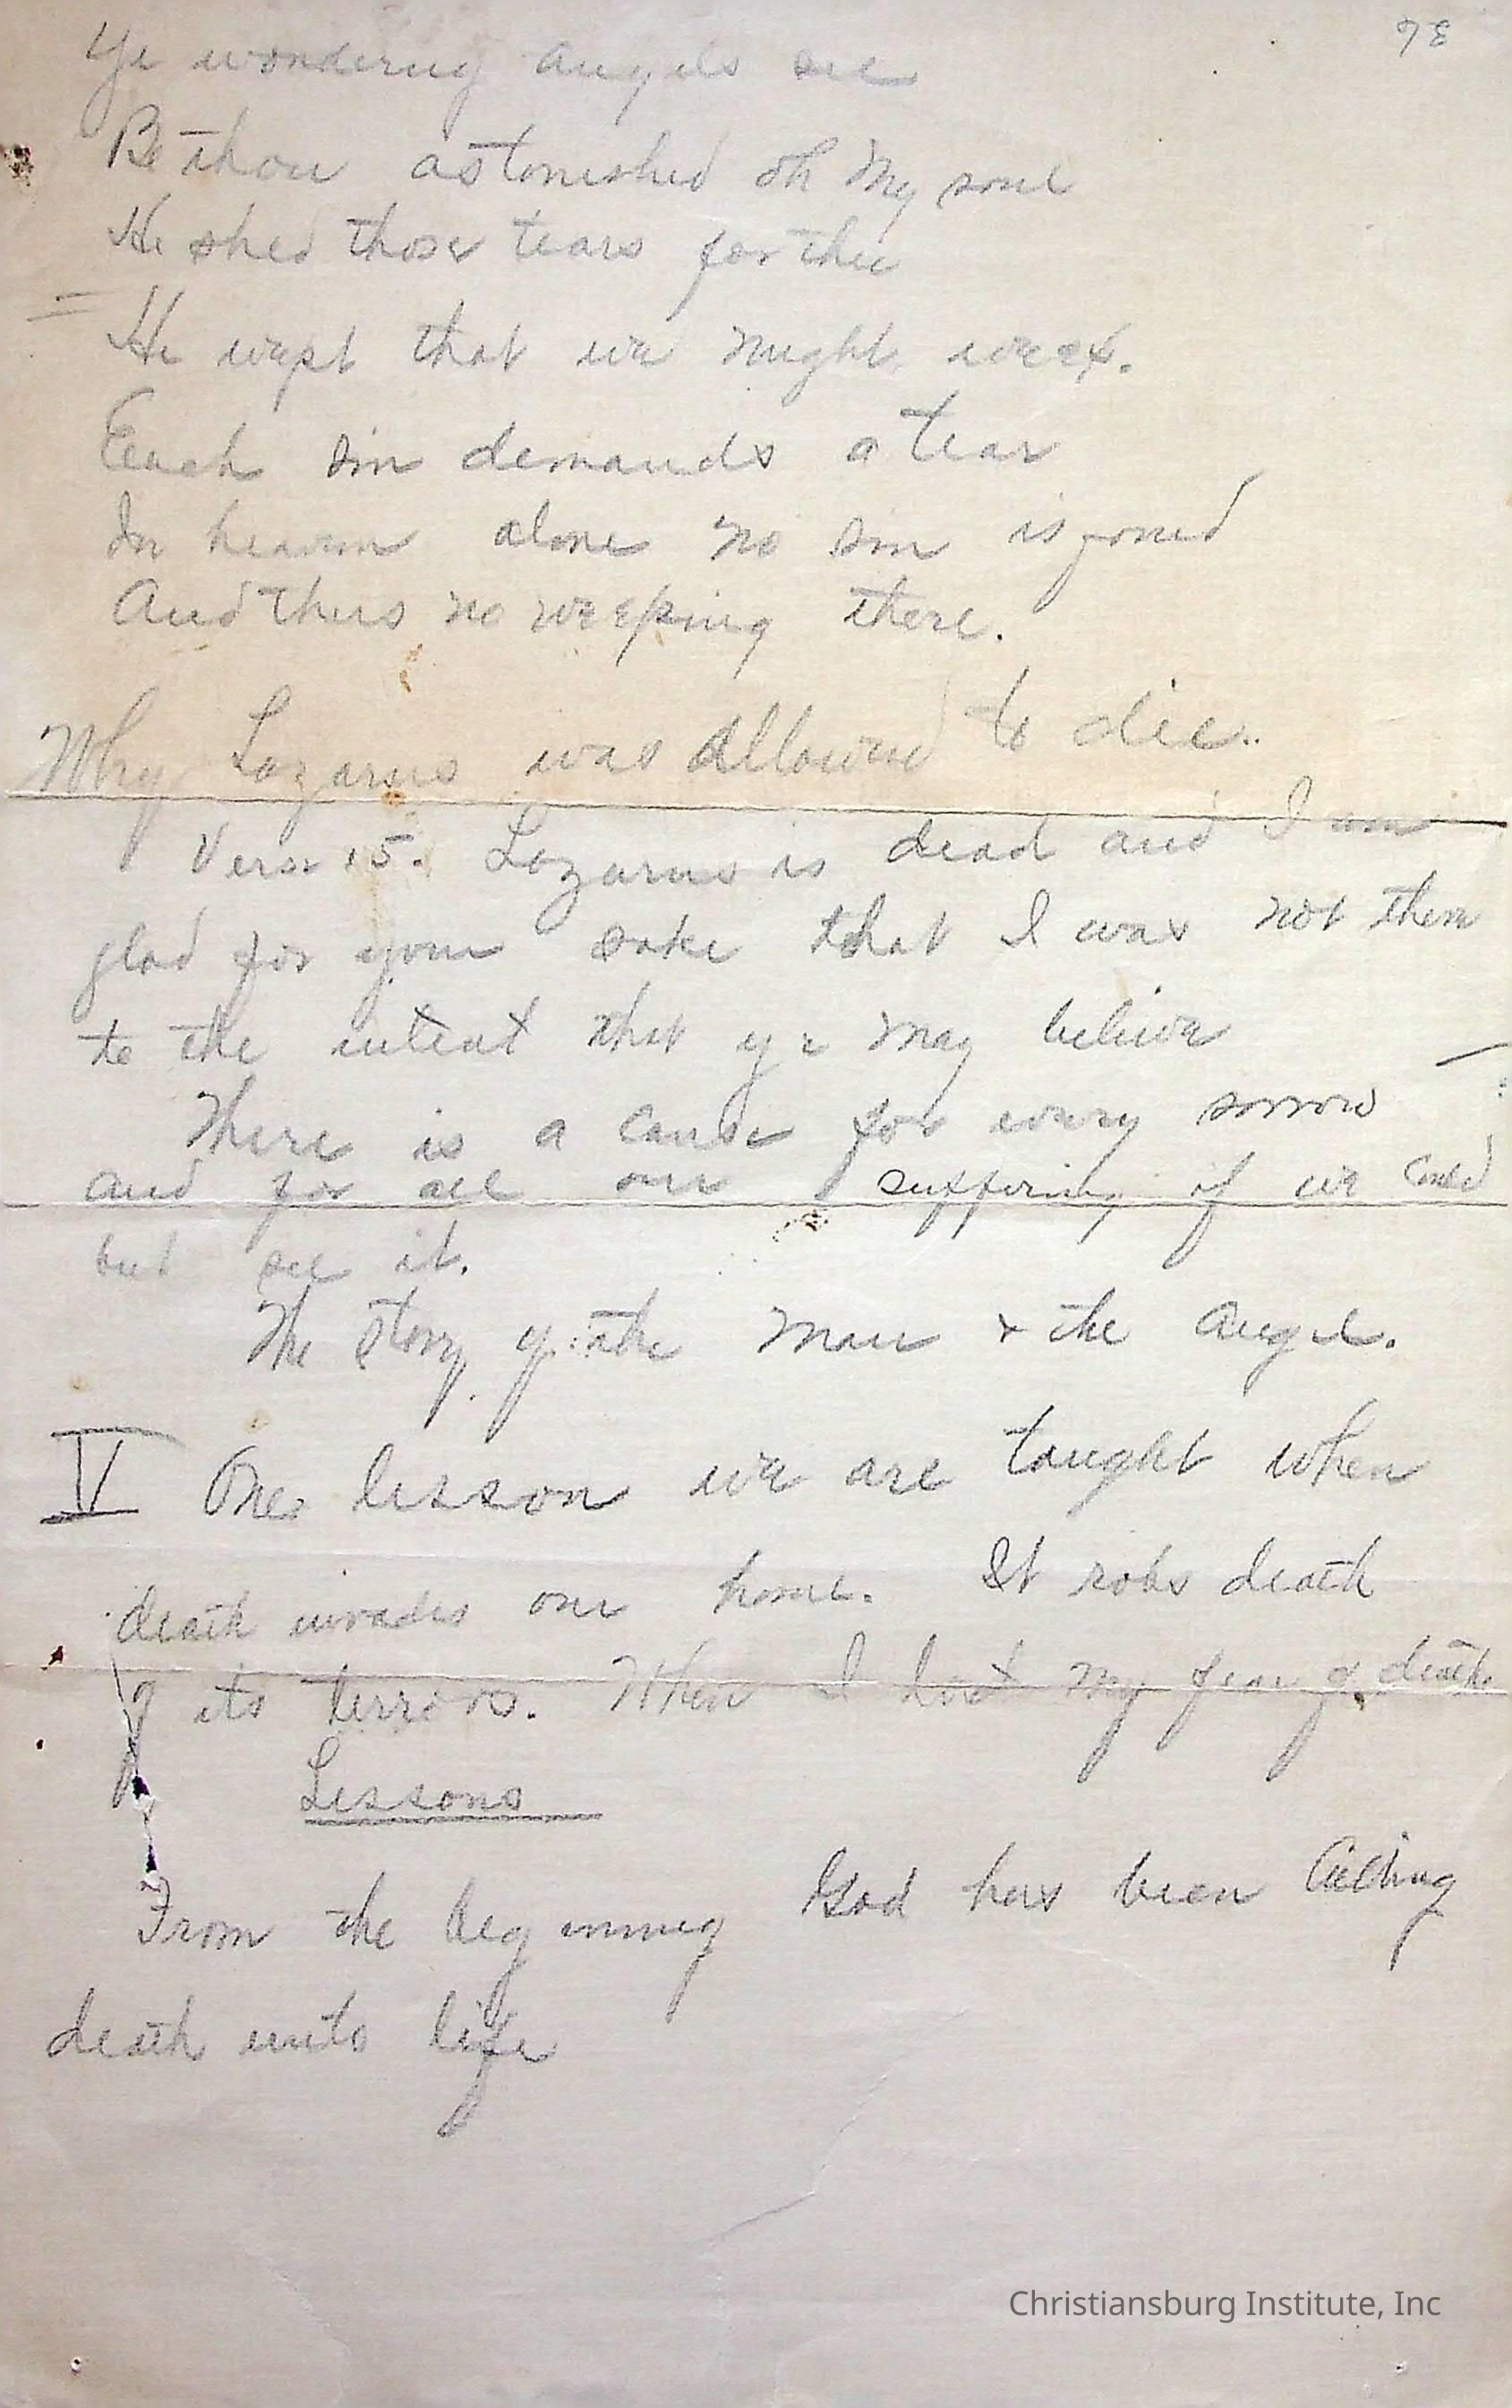 Ye wondering angels see
Be thou astonished oh my soul
He shed those tears for thee
He wept that we might weep.
Each sin demands a tear
In heaven alone no sin is found
And thus no weeping there.
Why Lazarus was allowed to die.
Verse 15. Lazarus is dead and I am
glad for your sake that I was not there
to the intent that ye may believe
There is a cause for every sorrow
and for all our suffering if we could
but see it.
The Story of the man & the angel.
IV One lesson we are taught when
death invades our home. It robs death
of its terrors. When I lost my fear of death
Lessons
From the beginning God has been
death unto life
Christiansburg Institute, Inc